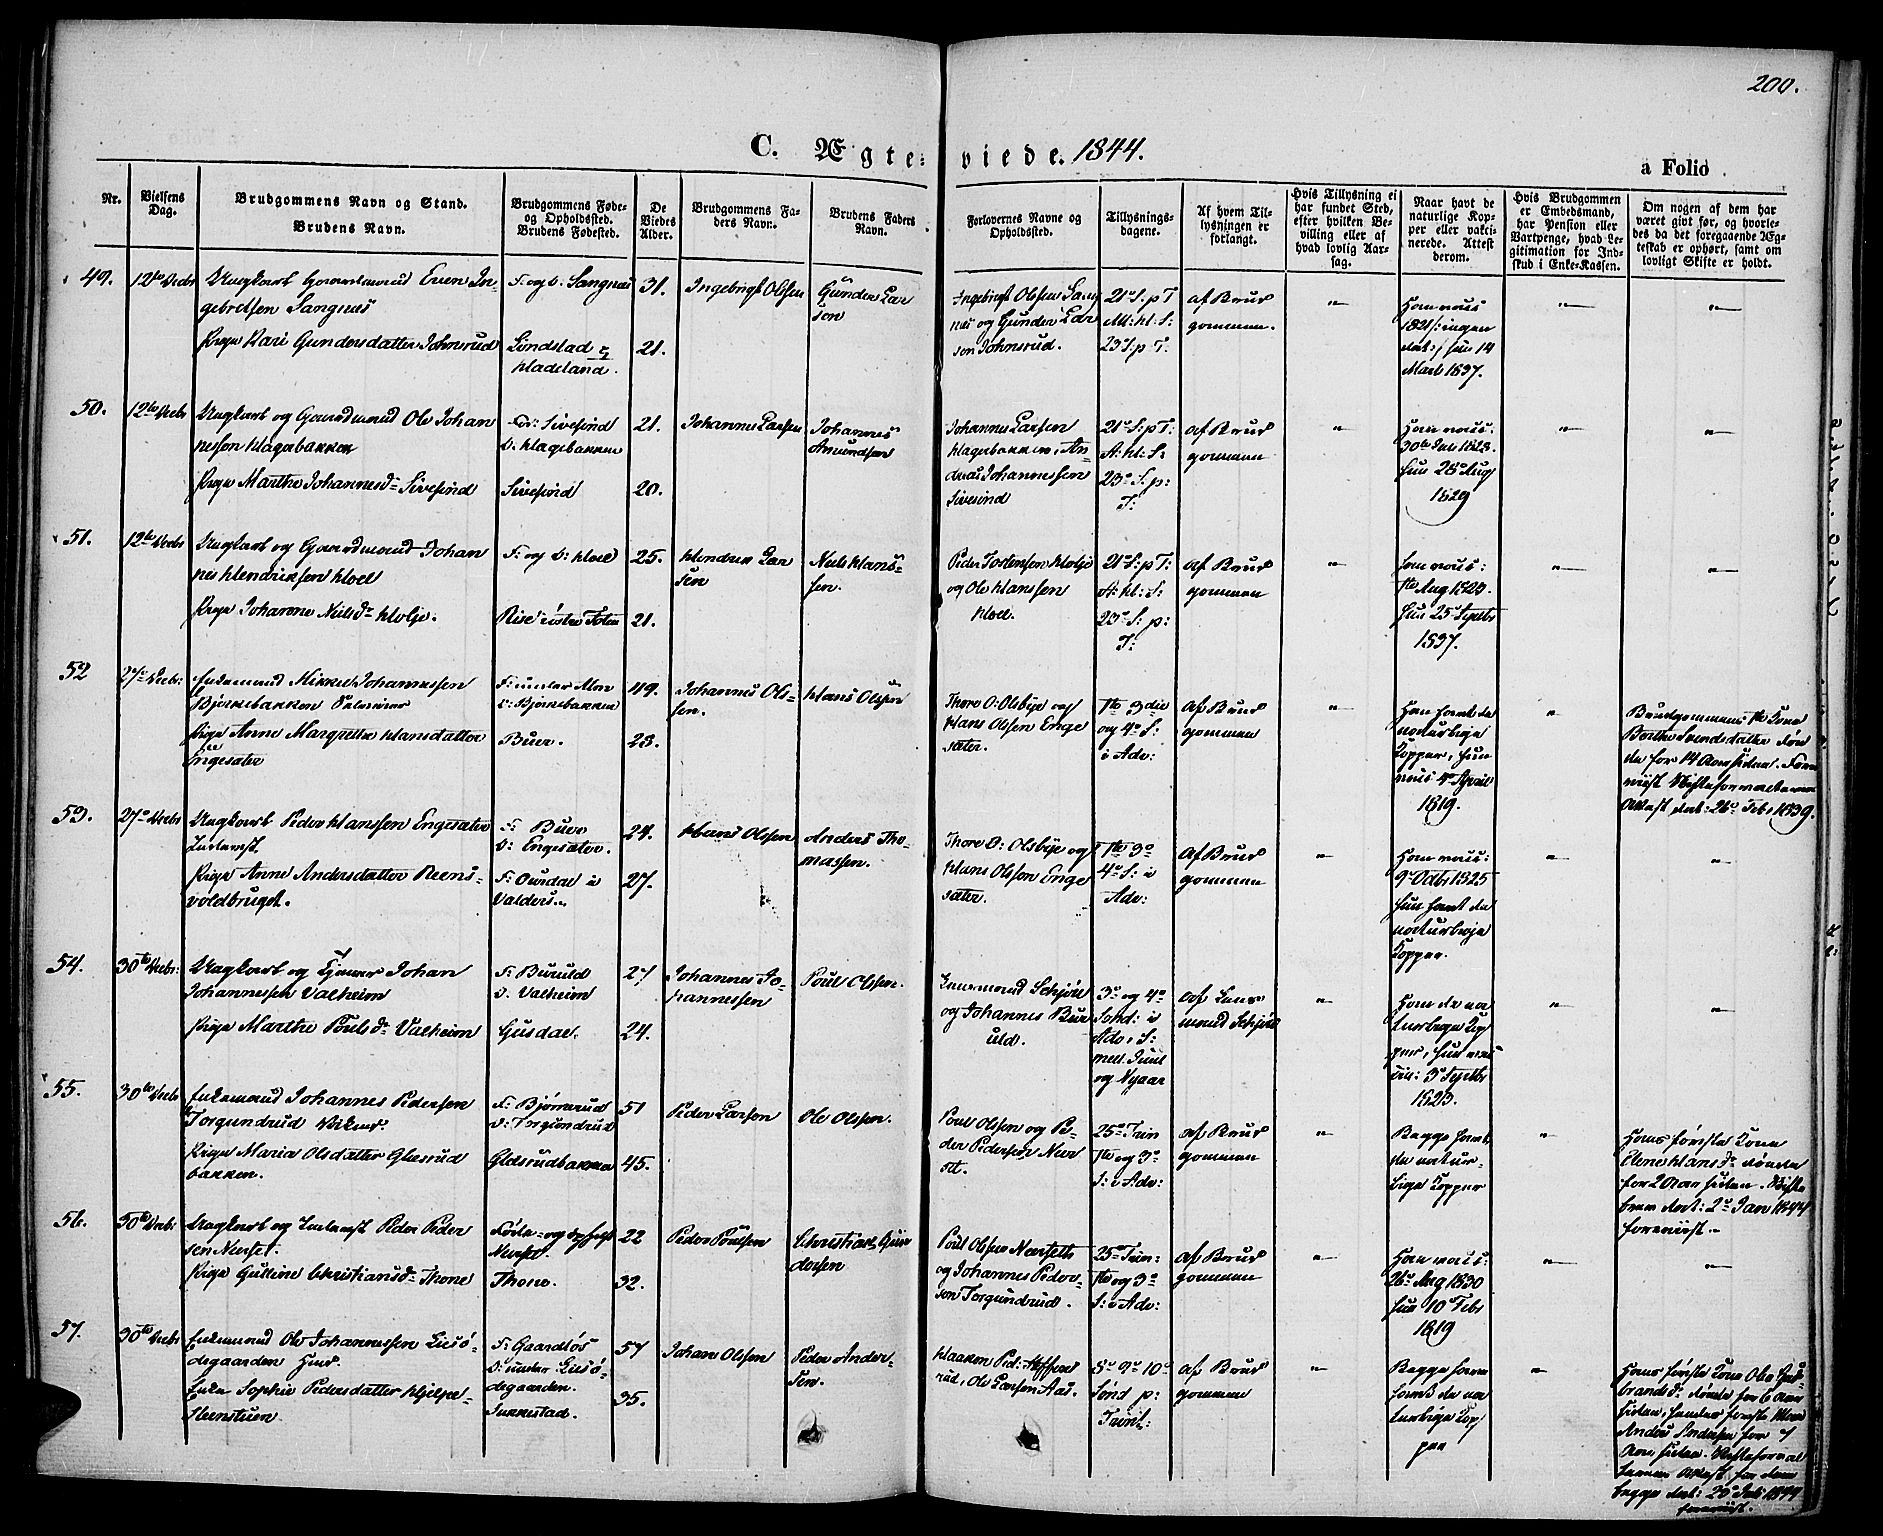 200.
C. Ægte-viede. 1844.
a Folio
Nr.
Vielsens Dag.
Brudgommens Navn og Stand.
Brudens Navn.
Brudgommens Føde-
og Opholdssted.
Brudens Fødested.
De
Viedes
Alder.
Brudgommens Fa-
ders Navn.
Brudens Faders
Navn.
Forlovernes Navne og
Opholdssted.
Tillysnings-
dagene.
Af hvem Til-
lysningen er
forlangt.
Hvis Tillysning ei
har fundet Sted,
efter hvilken Be-
villing eller af
hvad lovlig Aar-
sag.
Naar havt de
naturlige Kop-
per eller vakci-
nerede. Attest
derom.
Hvis Brudgommen
er Embedsmand,
har Pension eller
Vartpenge, hvad Le-
gitimation for Ind-
skud i Enke-Kassen.
Om nogen af dem har
været gift før, og hvorle-
des da det foregaaende Æg-
teskab er ophørt, samt om
lovligt Skifte er holdt.
49.
12te Decbr
Ungkarl Gaardmand Even In-
gebretsen Sangnæs
Pige Kari Gundersdatter Johnsrud
F. og O: Sangnæs
Løndstad
Hadeland.
31.
21.
Ingebrigt Olssen
Gunder Lar
sen
Ingebrigt Olssen Sang
næs og Gunder Lar
sen Johnsrud.
21de S: p T
All: hl. S:
23 S: p T.
af Brud
gommen.
Ham vacc:
1821/: ingen
dat:/ hun 14
Marts 1837.
50.
12te Decbr
Ungkarl og Gaardmand Ole Johan
nessen Hagebakken
Pige Marthe Johannesdr Sivesind
F: Sivesind
O: Hagebakken
Sivesind
21.
20.
Johannes Larssen
Johannes
Amundsen
Johannes Larssen
Hagebakken, An
dreas Johannessen
Sivesind
21de S: p T:
A: hl: S:
23de S: p:
T:
af Brud
gommen
Ham vacc:
30te Juli 1823.
hun 28de Aug
1829
51.
12te Decbr
Ungkarl og Gaardmand Johan
nes Hendriksen Hoel
Pige Johanne Nielsdr Holje.
F: og O: Hoel
Rise i østre Toten
25.
21.
Hendrik Lar
sen
Niels Hans-
sen.
Peder Holje
og Ole Hanssen
Hoel.
21de S: p T:
A: hl: S:
23de S: p:
T:
af Brud
gommen
Ham vacc:
Aug 1823.
hun 25de Septbr
1837.
52
27de Decbr:
Enkemand Mikkel Johannessen
Bjørkebakken
Pige Anne Margrethe Hansdatter
Engesæter
F: under Alm
O: Bjørkebakken
Buer.
49.
23.
Johannes Ols-
sen.
Hans Olssen
Thore O: Olsbye og
Hans Olssen Enge
sæter.
1te 3die
og 4de S:
i Adv:
af Brud
gommen
Ham havt de
naturlige
Kopper, hun
vacc 4de April
1819.
Brudgommens 1te Kone
døe
de for 14 Aar siden.
Attest dat: 26de Feb: 1839.
53.
27de Decbr
Ungkarl Peder Hanssen Engesæter
Inderst.
Pige Anne Andersdatter Reens-
voldbruget.
F. Buer
O: Engesæter.
F: Ourdal i
Valders.
24.
27.
Hans Olssen
Anders Tho-
massen.
Thore O: Olsbye og
Hans Olssen Enge
sæter.
1te 3de
4de S: i
Adv:
af Brud
gommen
Ham vacc:
9de Octbr 1825
hun havt de
naturlige
Kopper.
54.
30te Decbr:
Ungkarl og Tjener Johan
Johannessen Valheim
Pige Marthe Poulsdr Valheim
F: Buruld
O. Valheim
Gusdal.
27
24.
Johannes Jo-
hannessen
Poul Olssen.
Lensmand Schjøll
og Johannes Bur
uld.
3de og 4de
Sønd: i
Adv: S:
mel. Juul
og Nyaar
af Lens
mand Schjøll
Ham de na
turlige Kop
per, hun vac
cin: 3de Septbr
1823.
55.
30te Decbr
Enkemand Johannes Pedersen
Torgundrud
Pige Maria Olsdatter Glæsrud
bakken.
F: Bjørnerud
O: Torgundrud
Glæsrudbakken
51
45.
Peder Larsen
Ole Olssen.
Poul Olssen og Pe-
der Pedersen Nær
set.
25de Trin
1te og 3de
S: i Adv:
af Brud
gommen
Begge havt
de natur-
lige Kopper
Hans første Kone
Elene Hansdr døde
for 2 Aar siden. Skifte
brev dat: 2de Jan 1844
foreviist.
56.
30te Decbr:
Ungkarl og Inderst Peder Peder
sen Nerset.
Pige Gulline Christiansdr Thone
Føde- og
Nerset.
Thone.
22
32.
Peder Poulsen
Christian Gun
dersen
Poul Olssen Nærseth
og Johannes Peder-
sen Torgundrud.
25de Trin:
1te og 3de
S: i Adv:
af Brud
gommen
Ham vacc:
26de Aug 1830
hun 10de Febr
1819
57.
30te Decbr
Enkemand Ole Johannessen Liesø-
degaarden
Enke Sophie Pedersdatter Hjelpe-
steenstuen.
F: Gaardløs
O: under Liesø-
degaarden.
Sukkestad.
57
35.
Johan Olssen
Peder Ander-
sen.
Haakon Ped:
rud, Ole Larsen Aas.
8de 9de 10de
Sønd p:
Trinit:
af Brud
gommen
Begge have
havt de na
turlige Kop
per
Hans første Kone
døde for 6 Aar
siden, hendes første Man
for 7
Aar siden.
Attest for dem
begge dat: 20de Juli 1844
foreviist.